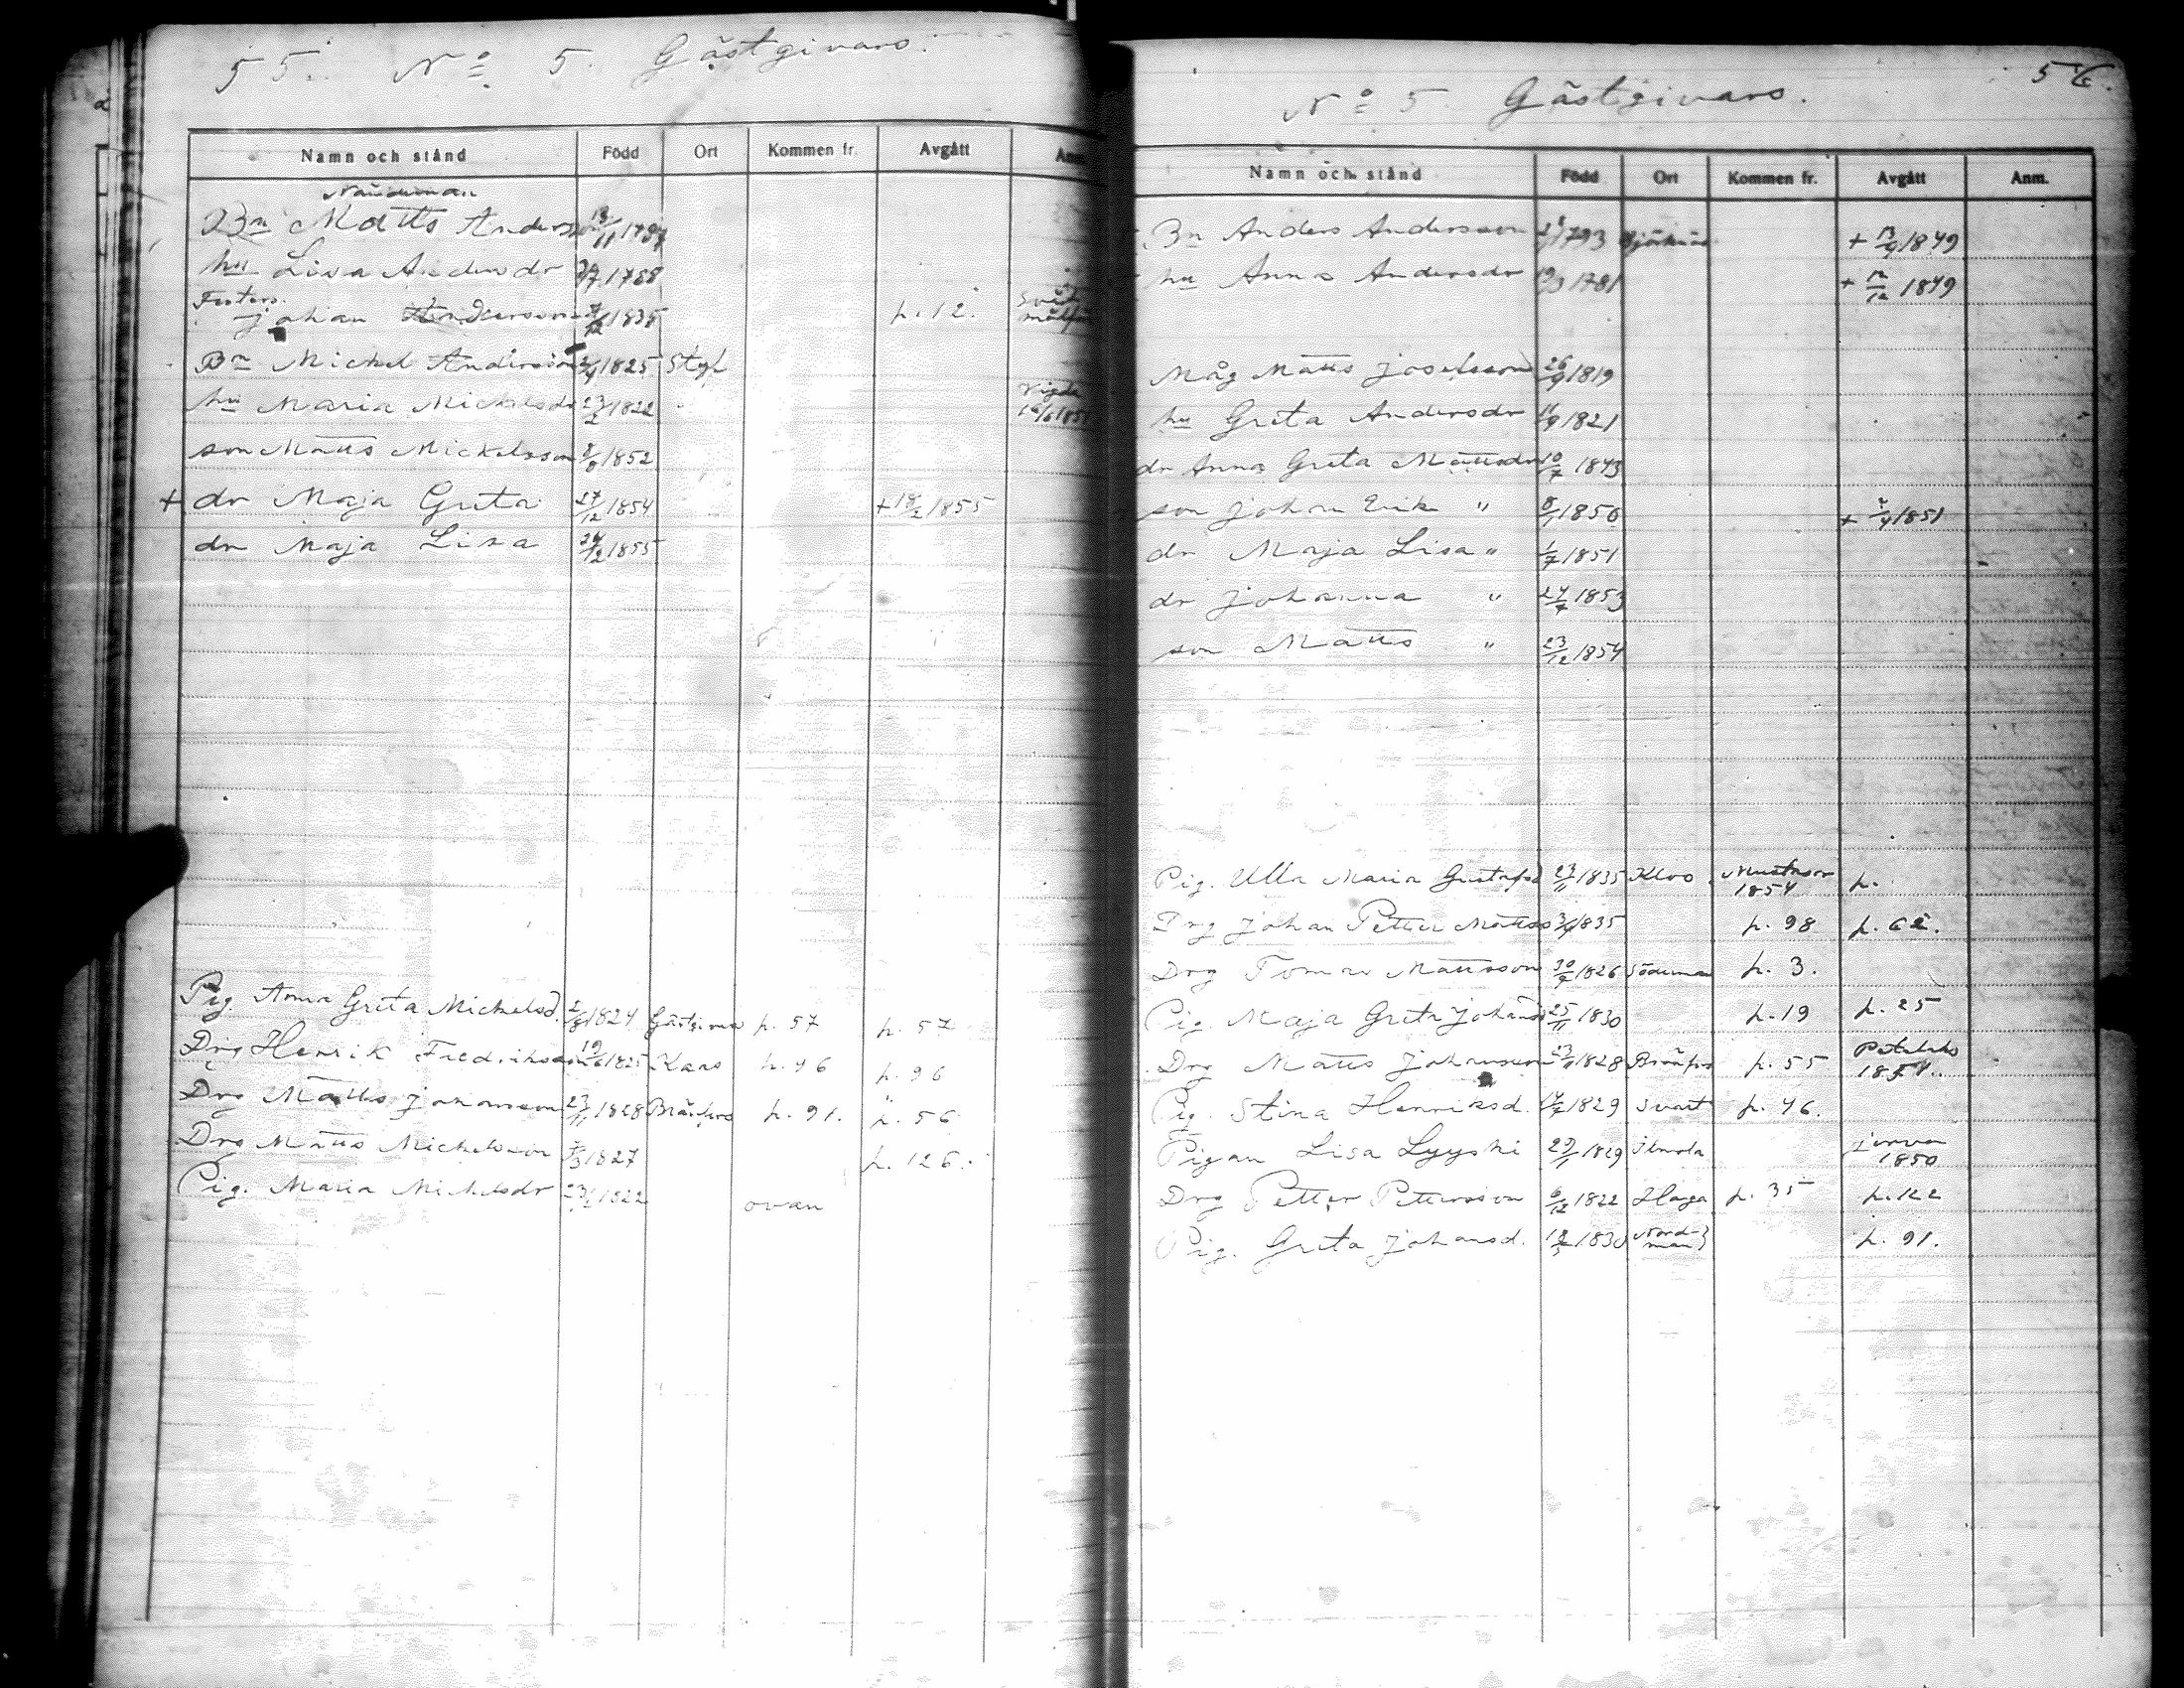 55. No 5. Gästgivars.
Namn och stånd Född Ort Kommen fr. Avgått Anm.
Nämdeman
Bn Matts Andersson 13/11 1787
hu Lisa Andersdr 1788
Fosters. Johan Andersson 7/12 1835 p. 12.
Bn Michel Andersson 1825
hu Maria Michelsdr 23/2 1822 Vigde 1851
son Matts Mickelsson 1852
+ dr Maja Greta 27/12 1854 + 18/2 1855
dr Maja Lisa 24/12 1855
Pig. Anna Greta Michelsd. 1824 Gästgivars p. 57 p. 57
Drg Henrik Fredriksson 19/6 1825 Kars p. 96 p. 96
Drg Matts Johansson 23/11 1828 Bränfors p. 91. p. 56
Drg Matts Michelsson 1827 p. 126.
Pig. Maria Michelsdr 23/2 1822 ovan
56.
No 5 Gästgivars.
Namn och stånd Född Ort Kommen fr. Avgått Anm.
Bn Anders Andersson 1793 + 13/9 1849
hu Anna Andersdr 1781 + 12/12 1849
Måg Matts Josefsson 26/9 1819
hu Greta Andersdr 1821
dr Anna Greta Mattsdr 10/7 1843
son Johan Erik " 8/1 1850 + 1851
dr Maja Lisa " 1/7 1851
dr Johanna " 24/7 1853
son Matts " 23/12 1854
Pig. Ulla Maria Gustafsd 23/11 1835 Klvo Mustasar 1854 p.
Drg Johan Petter Mattss 1835 p. 98 p. 62.
Drg Tomas Mattsson 30/9 1826 Söderman p. 3.
Pig. Maja Greta Johansd 25/11 1830 p. 19 p. 25
Drg Matts Johansson 23/11 1828 Bränfors p. 55 Petalaks 1854.
Pig. Stina Henriksd. 1829 Svart p. 46.
Pigan Lisa Lyyski 29/1 1829 Ilmola Jurva 1850
Drg Petter Pettersson 6/12 1822 Haga p. 35 p. 122
Pig. Greta Johansd. 1830 Nordman p. 91.